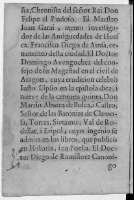 sia, Chronista del Señor Rei Don
Felipe el Prudente. El Maestro
Juan Garai, curioso investiga-
dor de las Antiguedades de Huesca.
Francisco Diego de Ainsa, en
ornamento desta ciudad. El Doctor
Domingo Avengochea del con-
sejo de su Magestad en el civil de
Aragon, cuya erudicion celebrò
Iusto Lipsio en la epistola diez, i
nueve de la centuria quinta. Don
Martin Abarca de Bolea, i Castro,
Señor de las Baronias de Clamosa,
Torres, Sietamo, Val de Ro-
dellar, i Eripol, cuyo ingenio fa
admirò en los libros, que publicò
en Historia, i en Poesia. El Doc-
tor Diego de Ramillori Canoni-
go